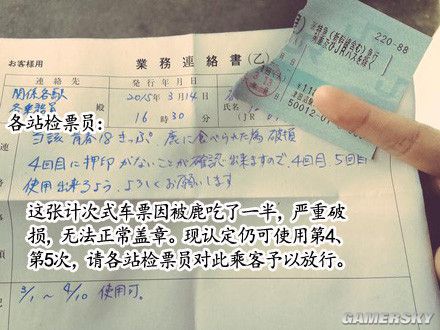 お客様用
業務連絡書(乙)
連絡先
発行年月日
関係各駅
各乗務員
殿
2015年3月14日
16時30分
(JR
各站检票员:
当該青春18きっぷ、鹿に食べられた為破損
4回目に押印がないことが確認出来ますので4回目、5回目
使用出来るよう、よろしくお願いします
这张计次式车票因被鹿吃了一半,严重破
损,无法正常盖章。现认定仍可使用第4、
第5次,请各站检票员对此乘客予以放行。
3/1〜4/10 使用可。
220-88
50012-0
GAMERSKY